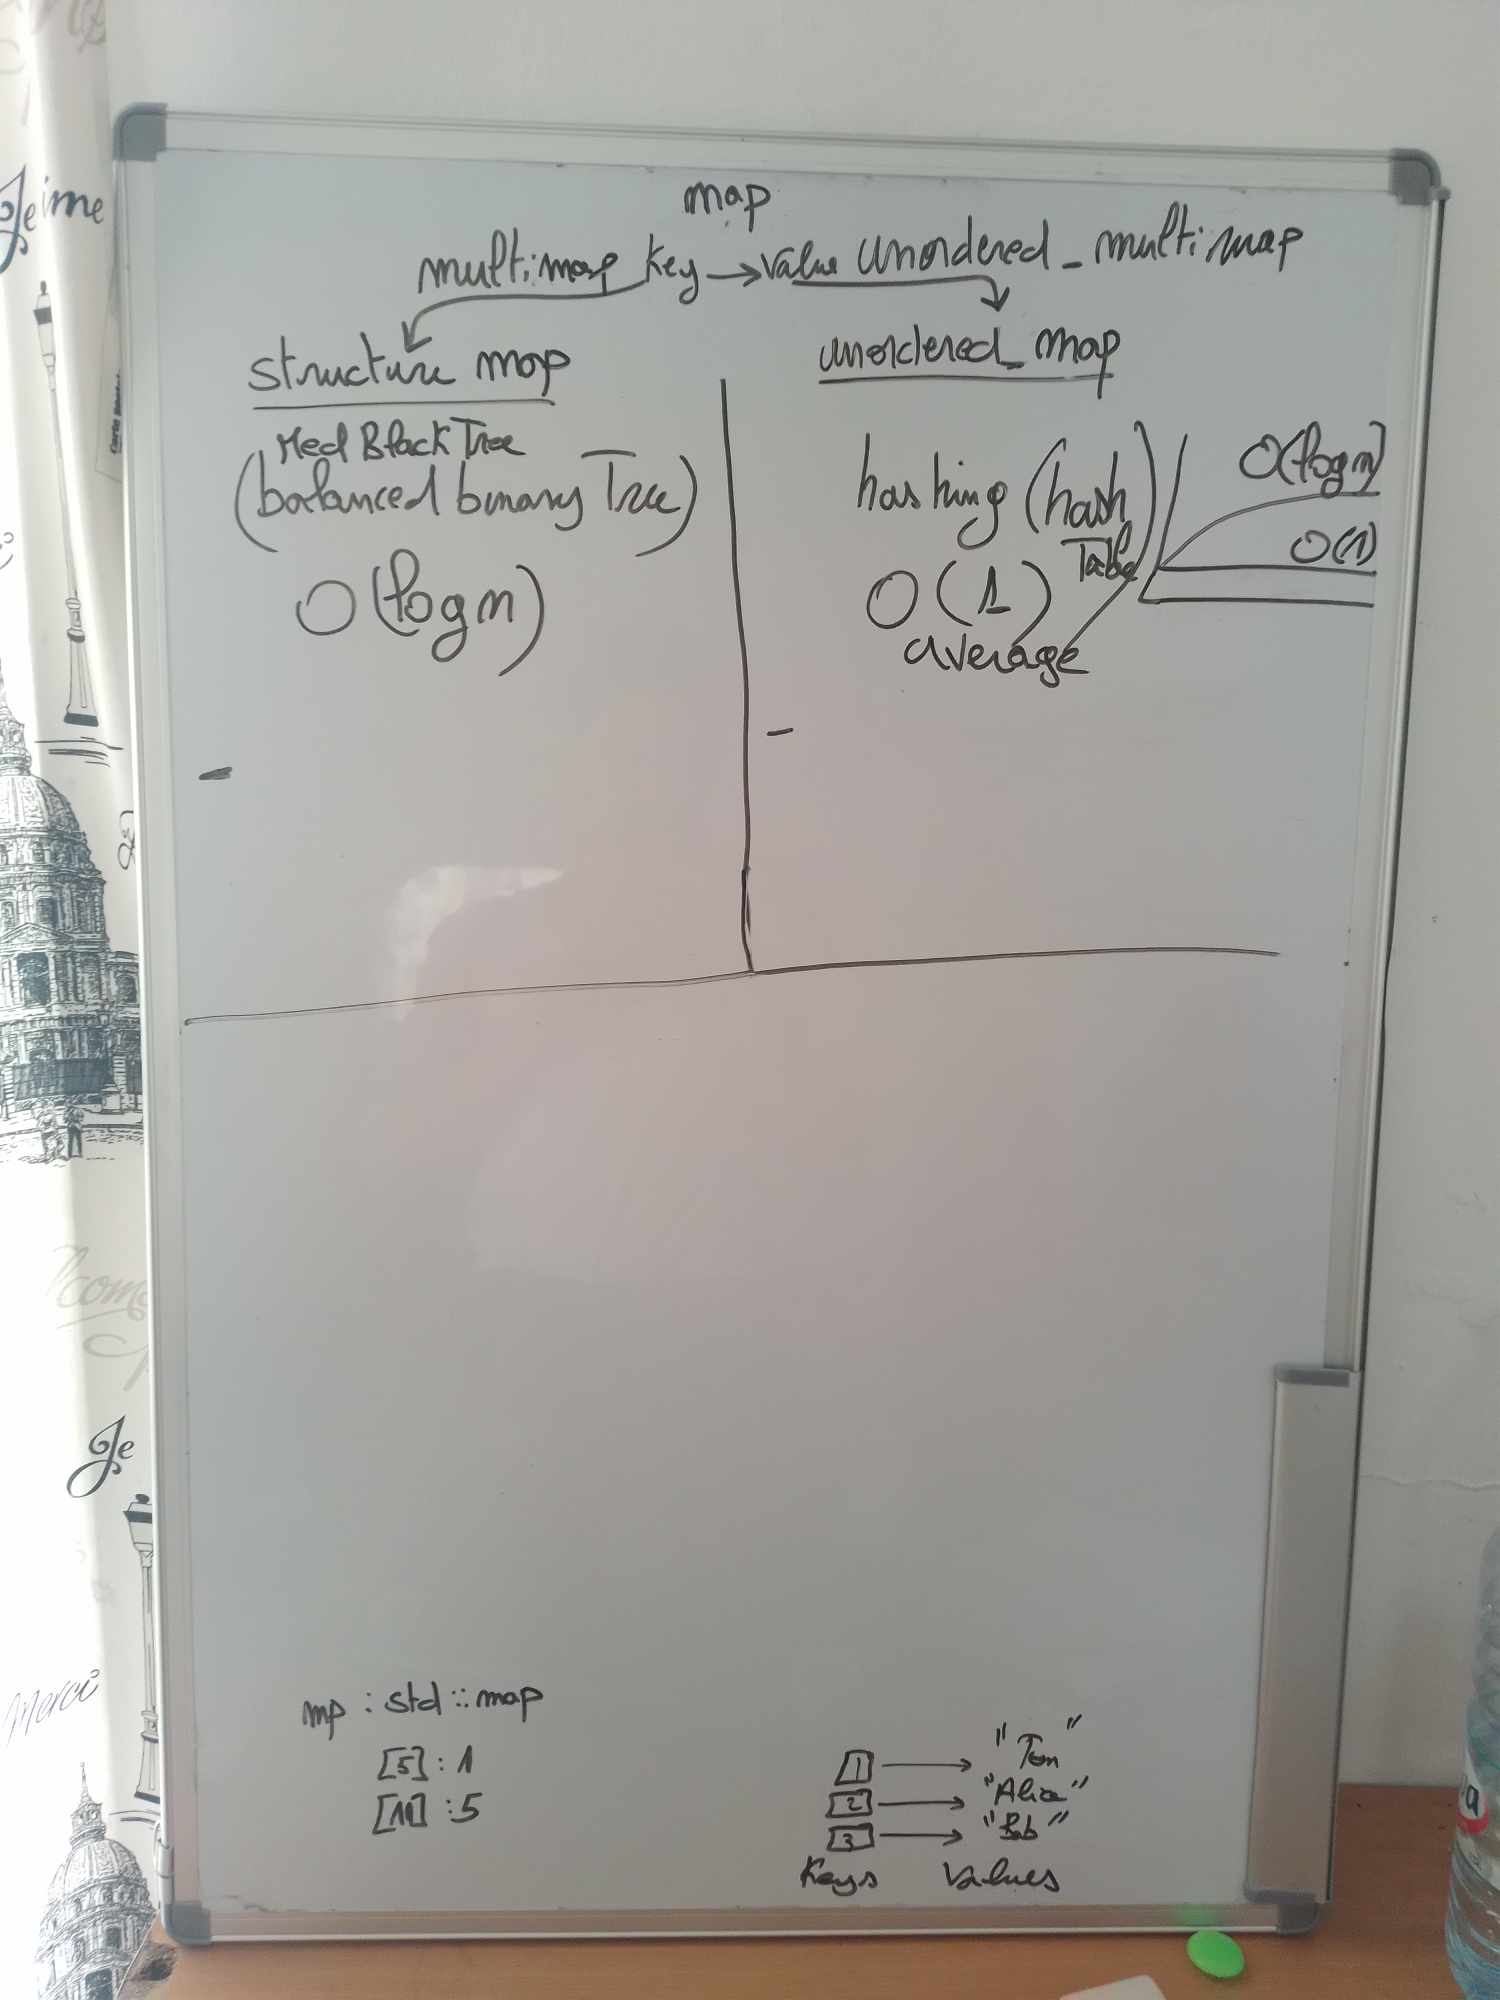 map
multimap key → value unordered_multimap
structure map
Red Black Tree
(balanced binary Tree)
O(log n)
unordered_map
hashing (hash Table)
O(1)
average
O(log n)
O(1)
mp : std :: map
[5] : 1
[10] : 5
1 → "Tom"
2 → "Alice"
3 → "Bob"
Keys Values
Je
ime
Je
Merci